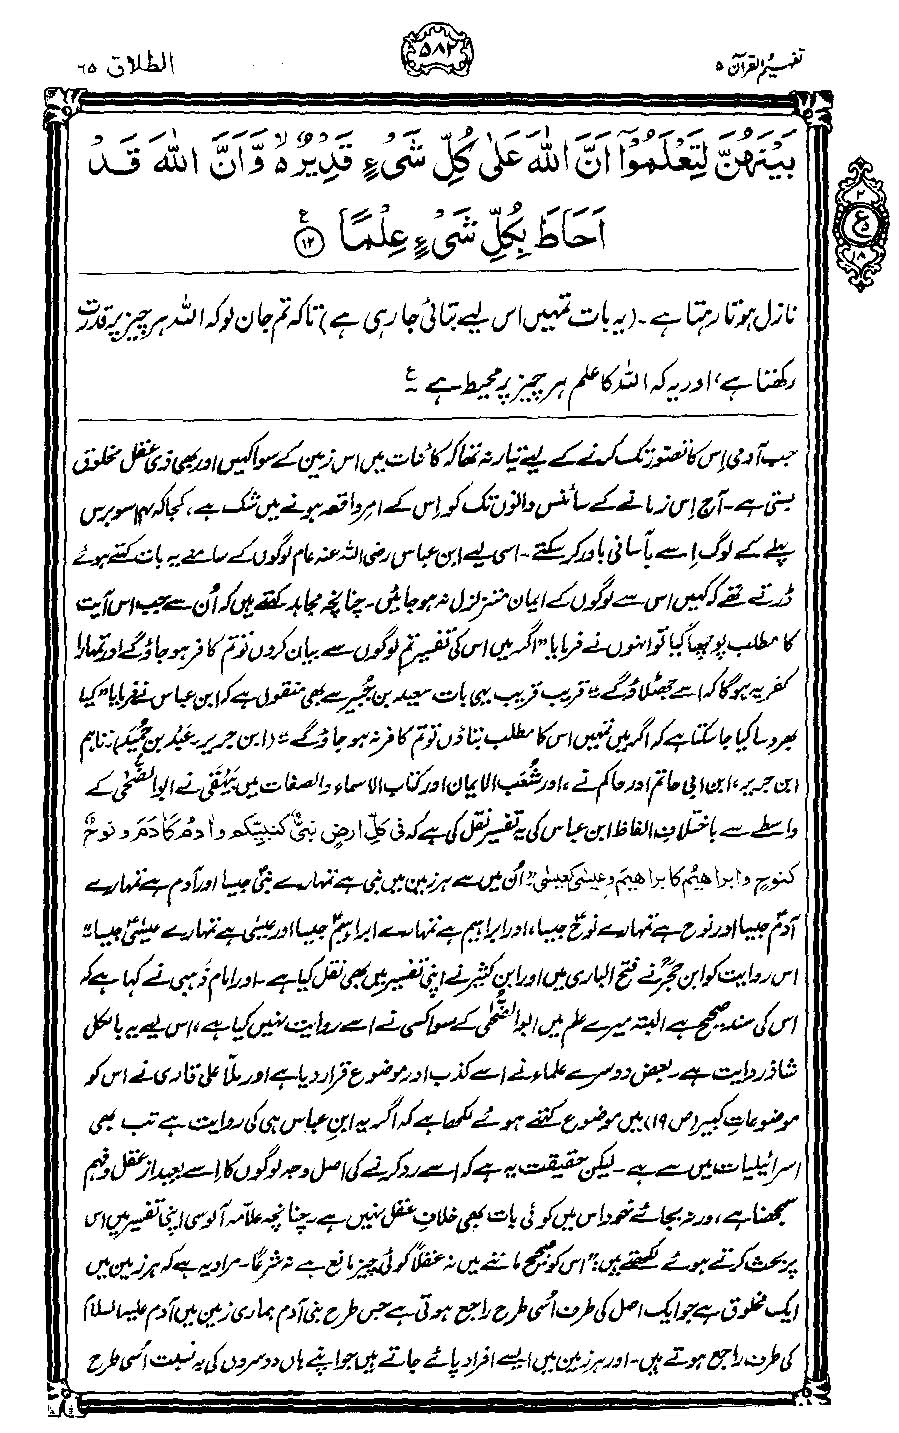 تفہیم القرآن ۵
۵۸۲
الطلاق ۶۵
بَيْنَهُنَّ لِتَعْلَمُوْٓا اَنَّ اللّٰهَ عَلٰى كُلِّ شَىْءٍ قَدِيْرٌ ۙ وَّاَنَّ اللّٰهَ قَدْ
اَحَاطَ بِكُلِّ شَىْءٍ عِلْمًا ﴿۱۲﴾ ع
۲
ع
۵
۱۸
نازل ہوتا رہتا ہے۔ (یہ بات تمہیں اس لیے بتائی جا رہی ہے) تاکہ تم جان لو کہ اللہ ہر چیز پر قدرت
رکھتا ہے، اور یہ کہ اللہ کا علم ہر چیز پر محیط ہے ۔ ع
جب آدمی اِس کا تصوّر تک کرنے کے لیے تیار نہ تھا کہ کائنات میں اس زمین کے سوا کہیں اور بھی ذی عقل مخلوق
بستی ہے۔ آج اِس زمانے کے سائنس دانوں تک کو اِس کے امرِ واقعہ ہونے میں شک ہے، کجا کہ ۱۴ سو برس
پہلے کے لوگ اِسے بآسانی باور کر سکتے۔ اسی لیے ابن عباس رضی اللہ عنہ عام لوگوں کے سامنے یہ بات کہتے ہوئے
ڈرتے تھے کہ کہیں اس سے لوگوں کے ایمان متزلزل نہ ہو جائیں۔ چنانچہ مجاہد کہتے ہیں کہ اُن سے جب اس آیت
کا مطلب پوچھا گیا تو انہوں نے فرمایا "اگر میں اس کی تفسیر تم لوگوں سے بیان کروں تو تم کافر ہو جاؤ گے اور تمہارا
کفر یہ ہوگا کہ اسے جھٹلاؤ گے"۔ قریب قریب یہی بات سعید بن جُبیر سے بھی منقول ہے کہ ابن عباس نے فرمایا "کیا
بھروسا کیا جا سکتا ہے کہ اگر میں تمہیں اس کا مطلب بتاؤں تو تم کافر نہ ہو جاؤ گے"۔ (ابن جریر۔ عَبد بن حُمید)۔ تاہم
ابن جریر، ابن ابی حاتم اور حاکم نے، اور شُعَب الایمان اور کتاب الاسماء والصفات میں بَیہقی نے ابوالضُّحٰی کے
واسطے سے باختلافِ الفاظ ابن عباس کی یہ تفسیر نقل کی ہے کہ فی کلِّ ارضٍ نبیٌّ کنبیِّکم واٰدمُ کاٰدمَ و نوحٌ
کنوحٍ وابراھیمُ کابراھیمَ وعیسٰی کعیسٰی۔ "اُن میں سے ہر زمین میں نبی ہے تمہارے نبیؐ جیسا اور آدم ہے تمہارے
آدمؑ جیسا اور نوح ہے تمہارے نوحؑ جیسا، اور ابراہیم ہے تمہارے ابراہیمؑ جیسا اور عیسٰی ہے تمہارے عیسٰیؑ جیسا"۔
اس روایت کو ابن حجرؒ نے فتح الباری میں اور ابن کثیرؒ نے اپنی تفسیر میں بھی نقل کیا ہے۔ اور امام ذَہبی نے کہا ہے کہ
اس کی سند صحیح ہے البتہ میرے علم میں ابوالضُّحٰی کے سوا کسی نے اسے روایت نہیں کیا ہے، اس لیے یہ بالکل
شاذ روایت ہے۔ بعض دوسرے علماء نے اسے کذب اور موضوع قرار دیا ہے اور ملّا علی قاری نے اس کو
موضوعاتِ کبیر (ص ۱۹) میں موضوع کہتے ہوئے لکھا ہے کہ اگر یہ ابن عباس ہی کی روایت ہے تب بھی
اسرائیلیات میں سے ہے۔ لیکن حقیقت یہ ہے کہ اسے رد کرنے کی اصل وجہ لوگوں کا اِسے بعید از عقل و فہم
سمجھنا ہے، ورنہ بجائے خود اس میں کوئی بات بھی خلافِ عقل نہیں ہے۔ چنانچہ علّامہ آلوسی اپنی تفسیر میں اس
پر بحث کرتے ہوئے لکھتے ہیں: "اس کو صحیح ماننے میں نہ عقلاً کوئی چیز مانع ہے نہ شرعاً۔ مراد یہ ہے کہ ہر زمین میں
ایک مخلوق ہے جو ایک اصل کی طرف اُسی طرح راجع ہوتی ہے جس طرح بنی آدم ہماری زمین میں آدم علیہ السلام
کی طرف راجع ہوتے ہیں۔ اور ہر زمین میں ایسے افراد پائے جاتے ہیں جو اپنے ہاں دوسروں کی بہ نسبت اُسی طرح